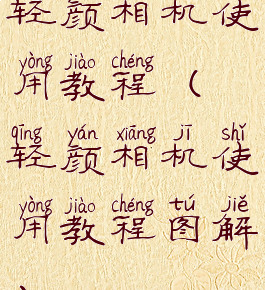 轻颜相机使
yòng jiào chéng
用教程（
qīng yán xiāng jī shǐ
轻颜相机使
yòng jiào chéng tú jiě
用教程图解
）